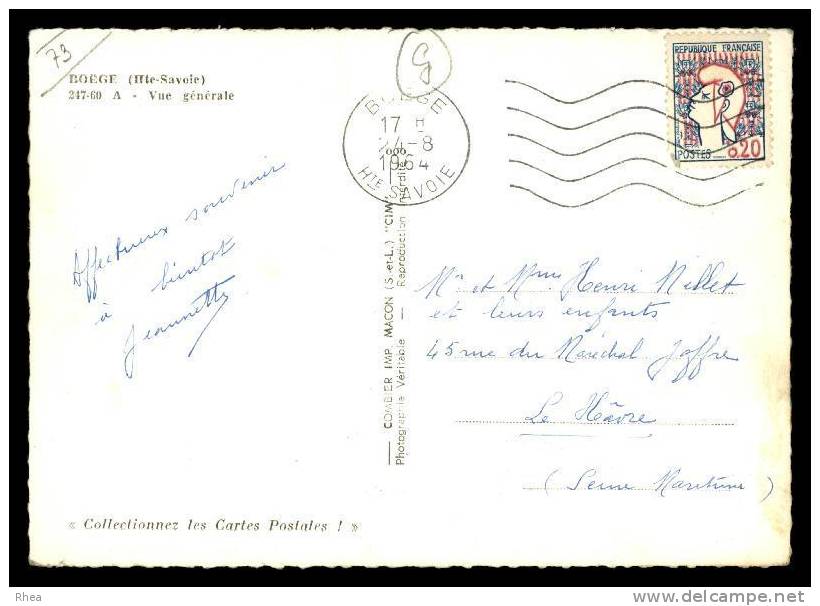 73
G
BOËGE (Hte-Savoie)
247-60 A - Vue générale
BOËGE
17 H
-8
1964
HTE SAVOIE
REPUBLIQUE FRANÇAISE
POSTES
0,20
Affectueux souvenir
à bientot
Jeannette
COMBIER IMP. MACON (S.-et-L.) "CIM"
Photographie Véritable — Reproduction Interdite
Mr et Mme Henri Millet
et leurs enfants
45 rue du Maréchal Joffre
Le Hâvre
(Seine Maritime)
« Collectionnez les Cartes Postales ! »
Rhea
www.delcampe.net